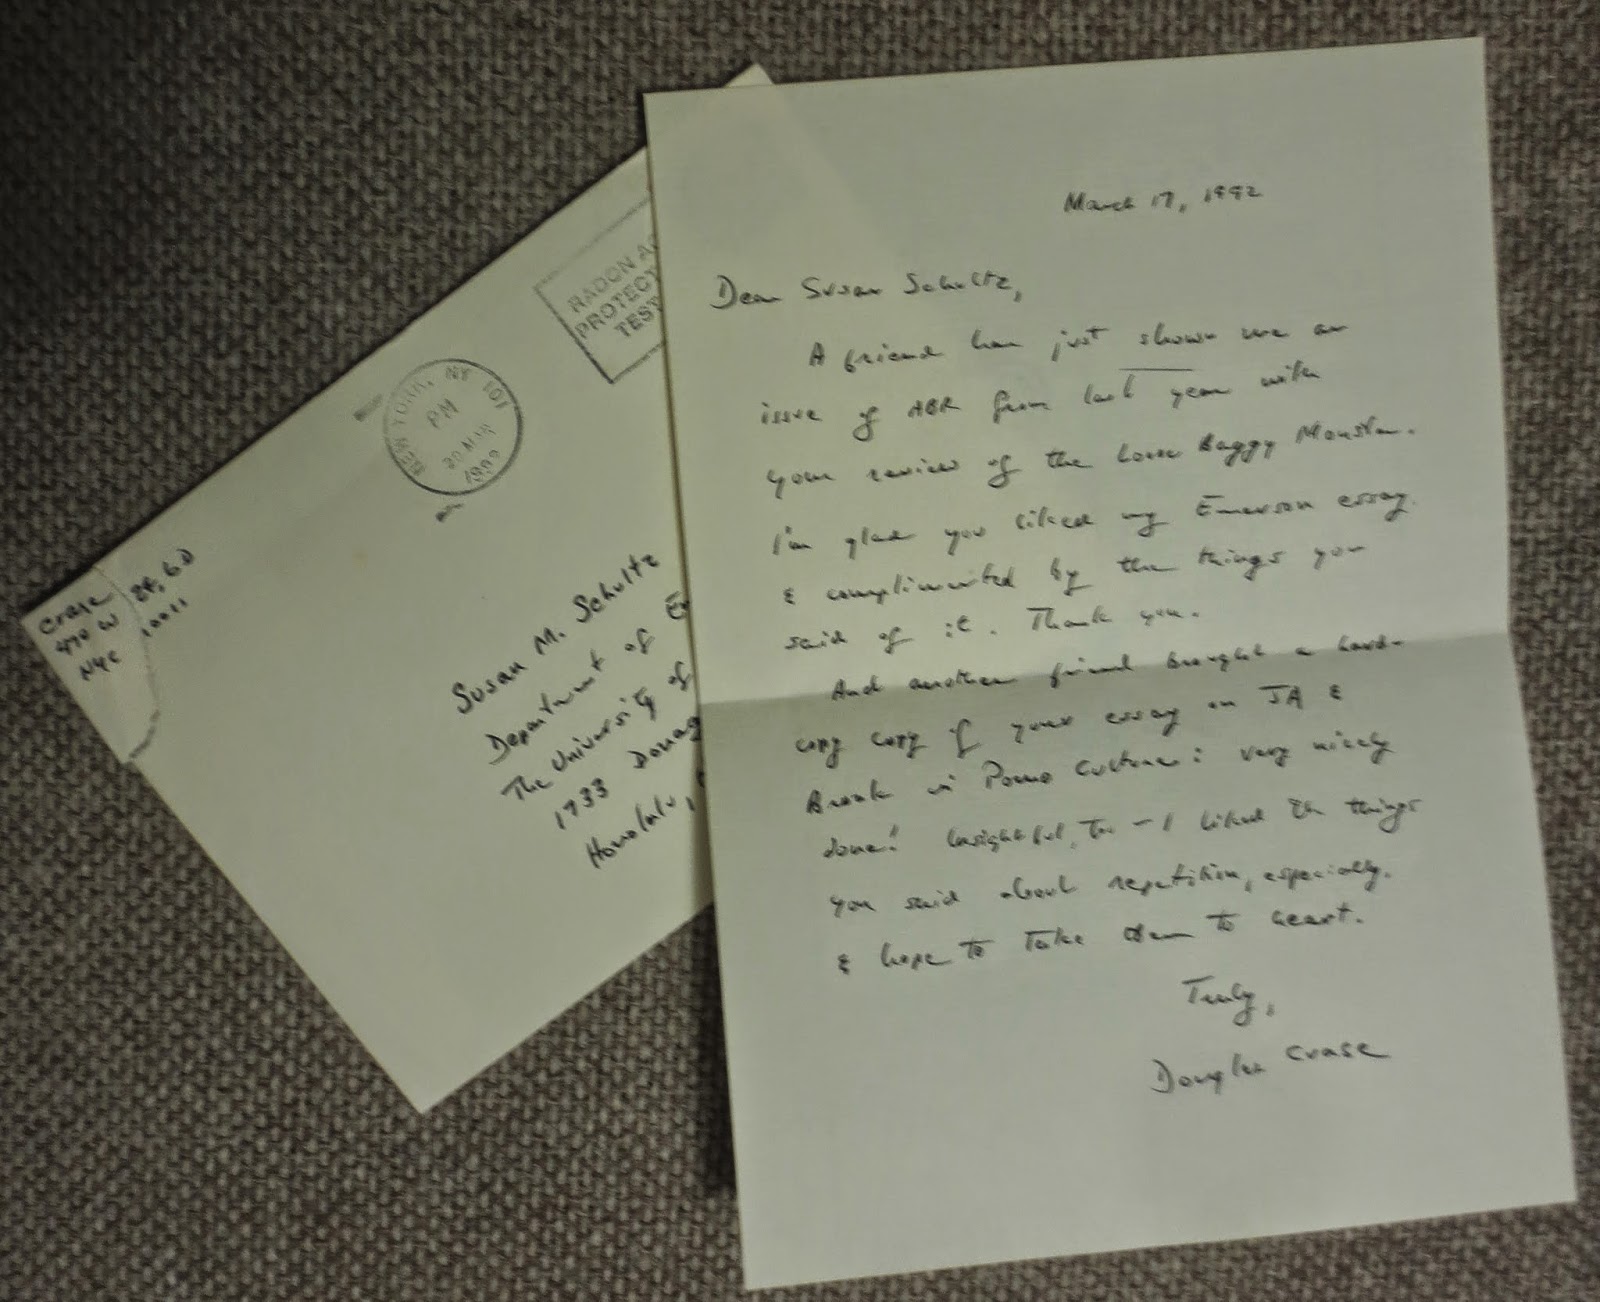 Crase
470 W 24, 6D
NYC 10011
NEW YORK, NY 101
PM
20 MAR
1992
RADON
PROTECT
TEST
Susan M. Schultz
Department of
The University of
1733 Donag
Honolulu,
March 17, 1992
Dear Susan Schultz,
A friend has just shown me an
issue of ABR from last year with
your review of the Loose Baggy Monster.
I'm glad you liked my Emerson essay
& complimented by the things you
said of it. Thank you.
And another friend brought a hard-
copy copy of your essay on JA &
Bronk in Pomo Culture: very nicely
done! Insightful, too - I liked the things
you said about repetition, especially.
& hope to take them to heart.
Truly,
Douglas Crase